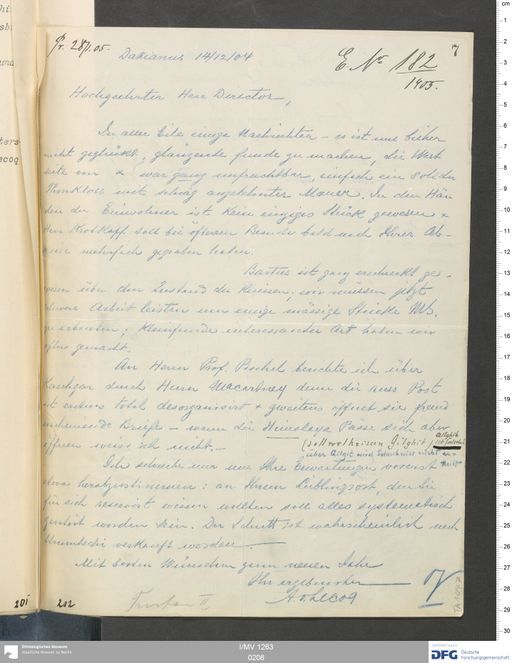 Pr. 28/1. 05.
Dakianus 14/12/04
E. No 182
1905.
7
Hochgeehrter Herr Director,
In aller Eile einige Nachrichten – es ist uns bisher
nicht geglückt, glänzende Funde zu machen, die West
seite war ganz unfruchtbar, einfach ein solider
Thonkloss mit schräg angelehnter Mauer. In den Hän
den der Einwohner ist kein einziges Stück gewesen &
soll die öfteren Besuche bald nach Ihrer Ab-
reise mehrfach gegraben haben.
Bartus ist ganz erschreckt ge-
wesen über den Zustand der Ruinen, wir müssen jetzt
schwere Arbeit leisten um einige mässige Stücke
Kleinfunde interessanter Art haben wir
öfter gemacht.
An Herrn Prof. Pischel berichte ich über
Kaschgar durch Herrn Macartney denn die russ Post
ist erstens total desorganisirt & zweitens öffnet sie fremd
Briefe – wann die Himalaya Pässe sich aber
öffnen weiss ich nicht. –
(soll wol heissen Gilghit)
über Gilgit wird
Ich schreibe nun um Ihre Erwartungen vorerst
etwas herabzustimmen: an Ihrem Lieblingsort, den Sie
für sich reservirt wissen wollten soll alles systematisch
zerstört worden sein. Der Schutt ist wahrscheinlich nach
Urumtschi verkauft worden
Mit besten Wünschen zum neuen Jahr
Ihr ergebenster
A v Le Coq
Turfan II
IV
TA 1042
201
202
I/MV 1263
0206
Ethnologisches Museum
Staatliche Museen zu Berlin
DFG Deutsche
Forschungsgemeinschaft